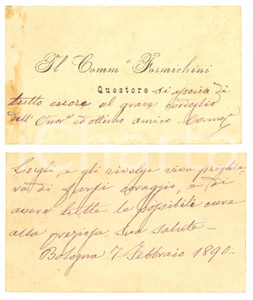 Il Comm.º Formichini
Questore si associa di
tutto cuore al grave cordoglio
dell'Onor. ed ottimo amico Comm.
e gli rivolge viva preghie
ra di farsi coraggio, e di
avere tutte le possibili cure
alla preziosa sua salute.
Bologna 7 Febbraio 1890.